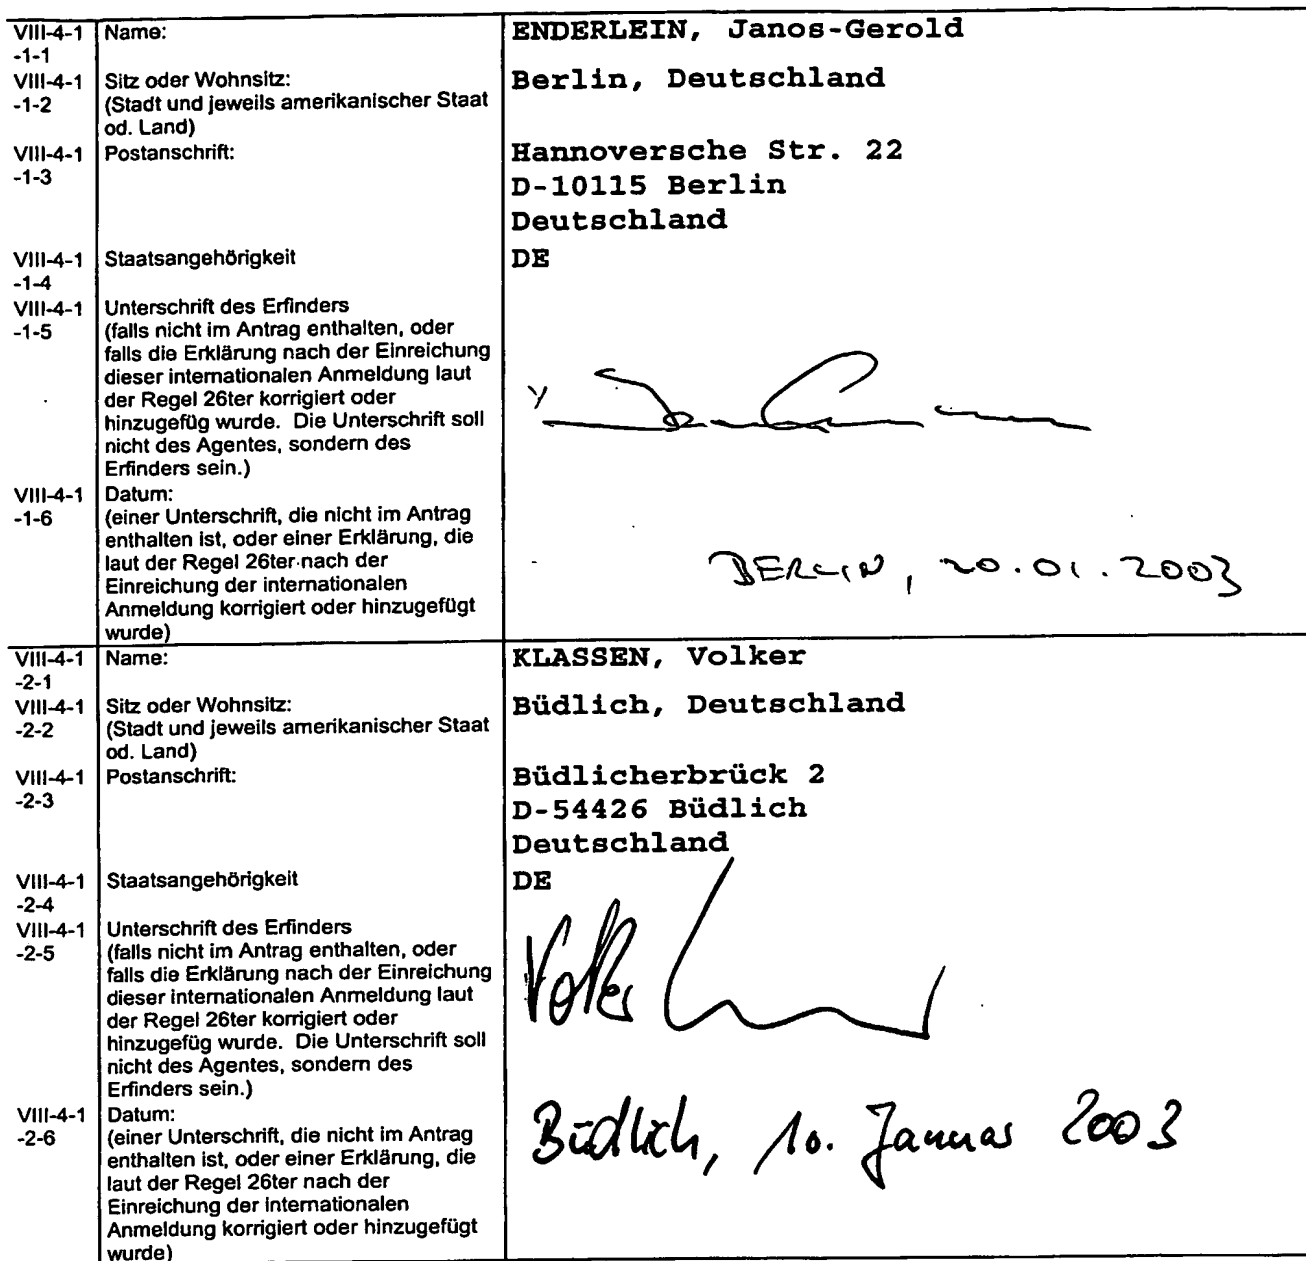 VIII-4-1 Name: ENDERLEIN, Janos-Gerold
-1-1
VIII-4-1 Sitz oder Wohnsitz: Berlin, Deutschland
-1-2 (Stadt und jeweils amerikanischer Staat
od. Land)
VIII-4-1 Postanschrift: Hannoversche Str. 22
-1-3 D-10115 Berlin
Deutschland
VIII-4-1 Staatsangehörigkeit DE
-1-4
VIII-4-1 Unterschrift des Erfinders
-1-5 (falls nicht im Antrag enthalten, oder
falls die Erklärung nach der Einreichung
dieser internationalen Anmeldung laut
der Regel 26ter korrigiert oder
hinzugefüg wurde. Die Unterschrift soll
nicht des Agentes, sondern des
Erfinders sein.)
VIII-4-1 Datum:
-1-6 (einer Unterschrift, die nicht im Antrag
enthalten ist, oder einer Erklärung, die
laut der Regel 26ter nach der
Einreichung der internationalen BERLIN, 20.01.2003
Anmeldung korrigiert oder hinzugefügt
wurde)
VIII-4-1 Name: KLASSEN, Volker
-2-1
VIII-4-1 Sitz oder Wohnsitz: Büdlich, Deutschland
-2-2 (Stadt und jeweils amerikanischer Staat
od. Land)
VIII-4-1 Postanschrift: Büdlicherbrück 2
-2-3 D-54426 Büdlich
Deutschland
VIII-4-1 Staatsangehörigkeit DE
-2-4
VIII-4-1 Unterschrift des Erfinders
-2-5 (falls nicht im Antrag enthalten, oder
falls die Erklärung nach der Einreichung
dieser internationalen Anmeldung laut
der Regel 26ter korrigiert oder Volker
hinzugefüg wurde. Die Unterschrift soll
nicht des Agentes, sondern des
Erfinders sein.)
VIII-4-1 Datum:
-2-6 (einer Unterschrift, die nicht im Antrag Büdlich, 10. Januar 2003
enthalten ist, oder einer Erklärung, die
laut der Regel 26ter nach der
Einreichung der internationalen
Anmeldung korrigiert oder hinzugefügt
wurde)